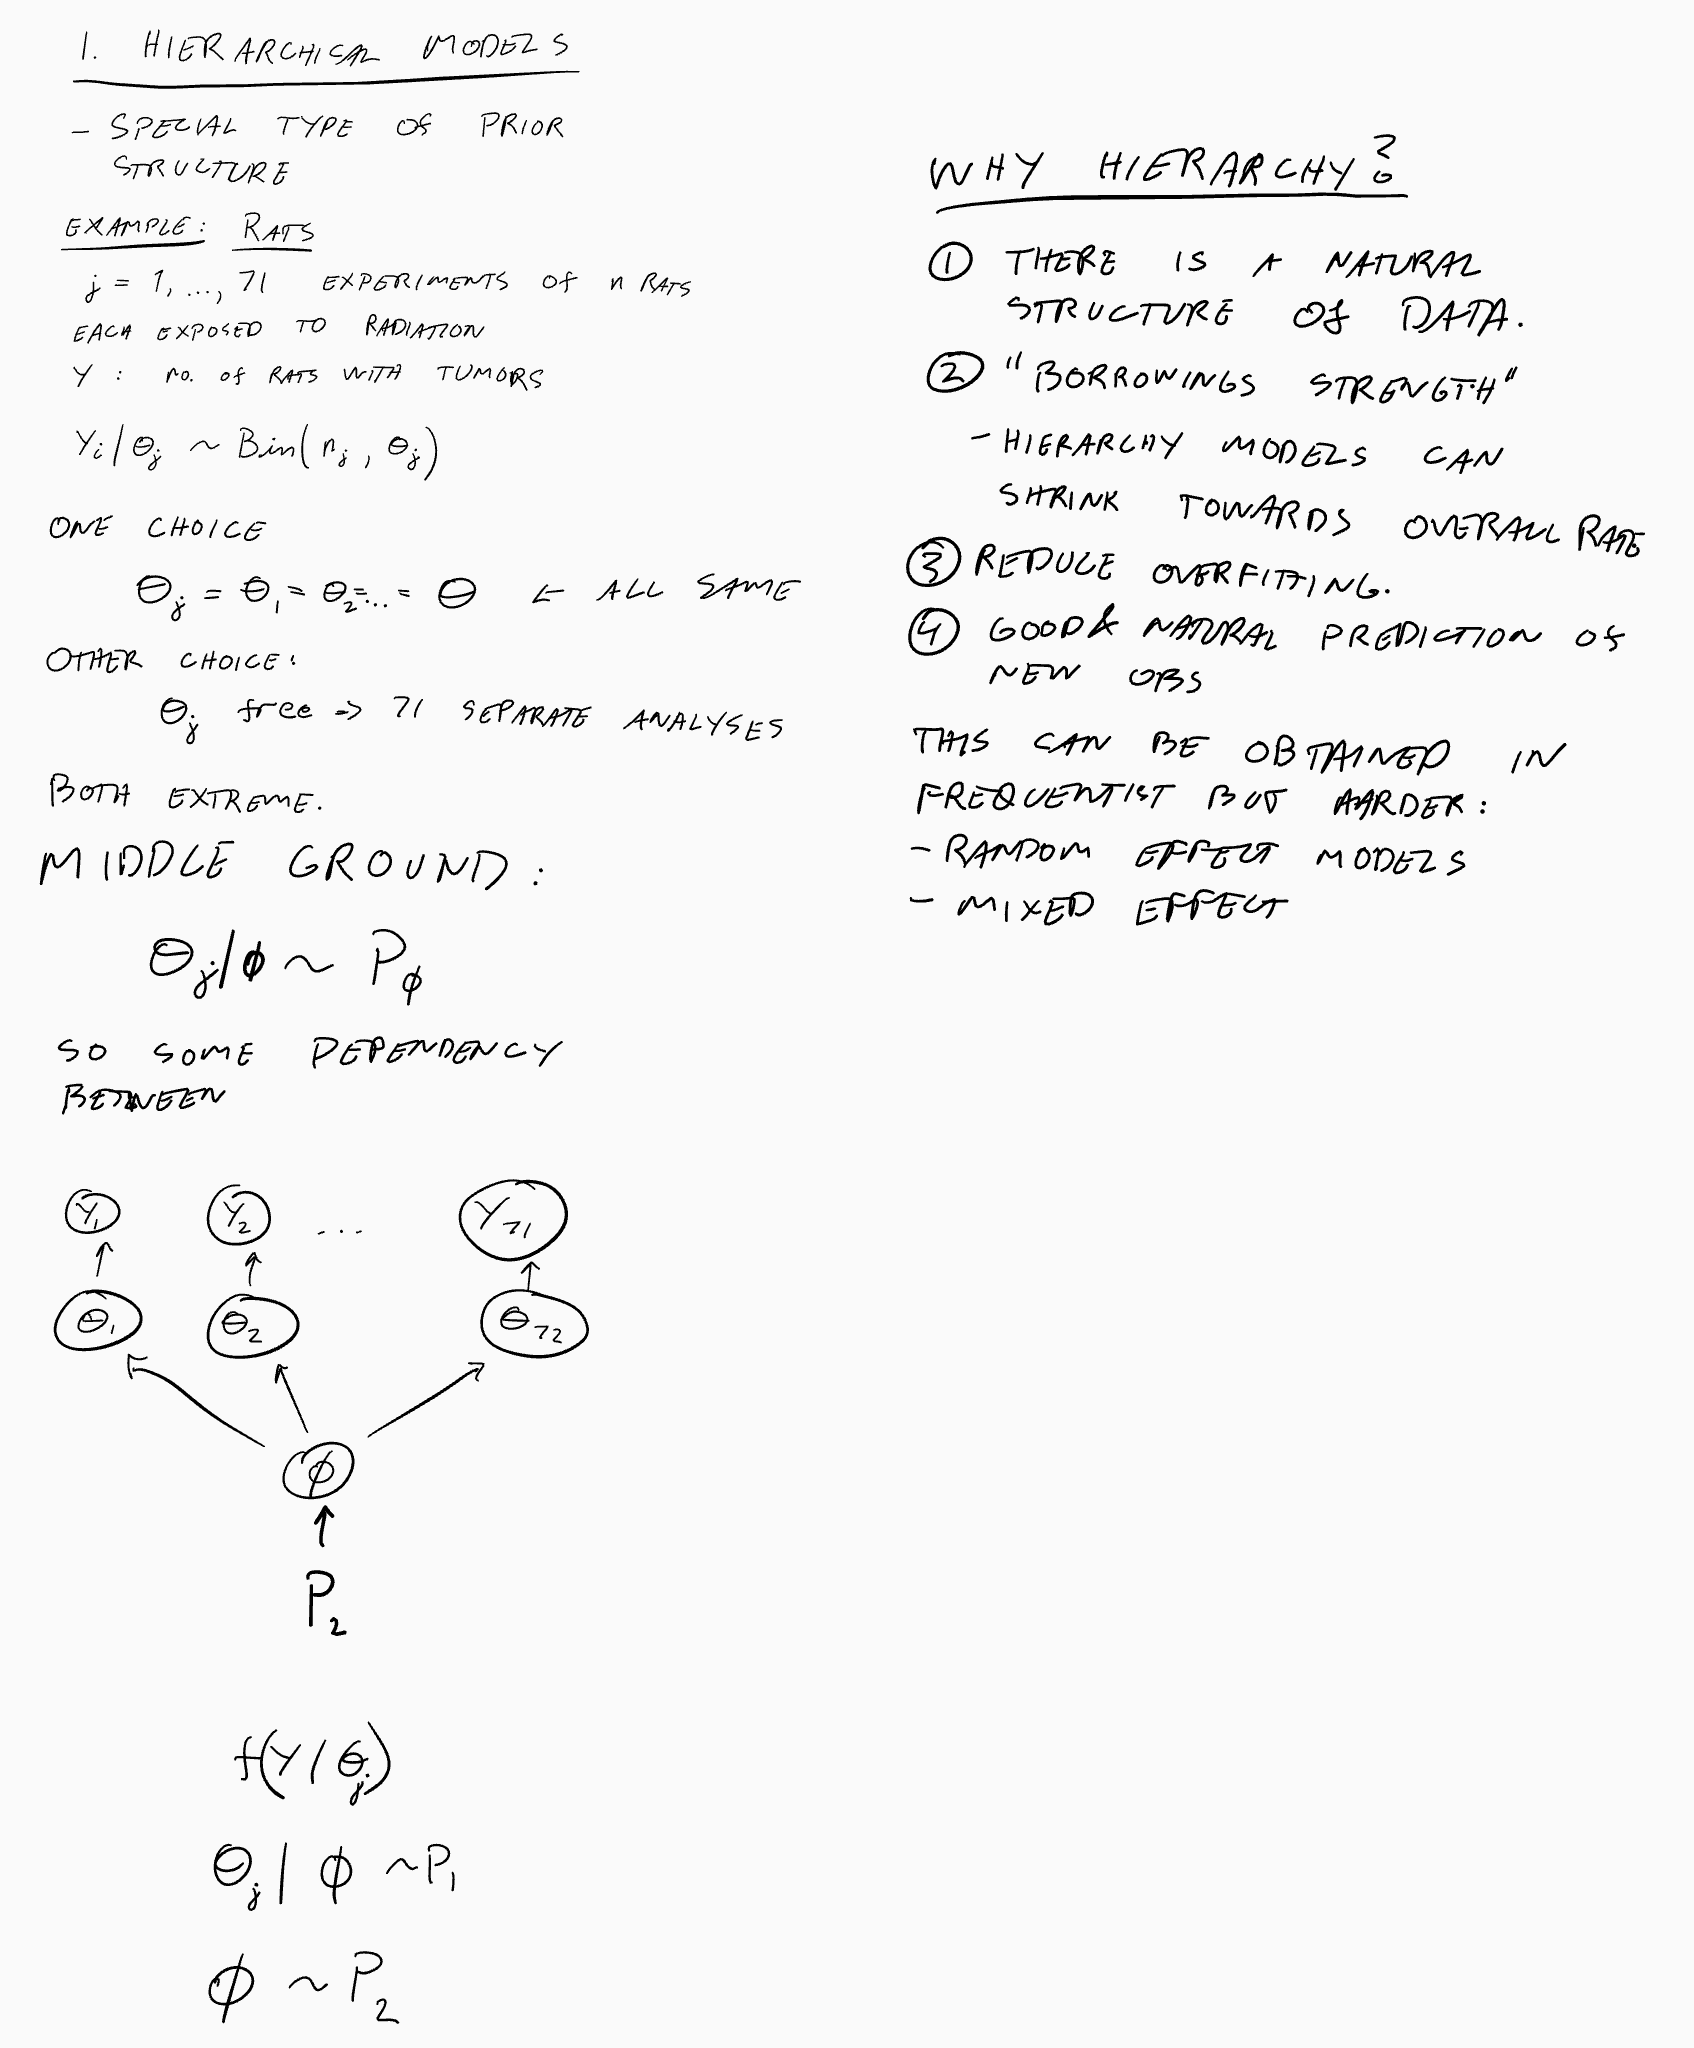 1. HIERARCHICAL MODELS
- SPECIAL TYPE OF PRIOR
STRUCTURE
EXAMPLE: RATS
j = 1, ..., 71 EXPERIMENTS OF n RATS
EACH EXPOSED TO RADIATION
Y : no. of RATS WITH TUMORS
Yi | θj ~ Bin(nj, θj)
ONE CHOICE
θj = θ1 = θ2 = ... = θ ← ALL SAME
OTHER CHOICE:
θj free → 71 SEPARATE ANALYSES
BOTH EXTREME.
MIDDLE GROUND:
θj | ϕ ~ Pϕ
SO SOME DEPENDENCY
BETWEEN
Y1 Y2 ... Y71
θ1 θ2 θ72
ϕ
P2
f(Y | θj)
θj | ϕ ~ P1
ϕ ~ P2
WHY HIERARCHY?
① THERE IS A NATURAL
STRUCTURE OF DATA.
② "BORROWINGS STRENGTH"
- HIERARCHY MODELS CAN
SHRINK TOWARDS OVERALL RATE
③ REDUCE OVERFITTING.
④ GOOD & NATURAL PREDICTION OF
NEW OBS
THIS CAN BE OBTAINED IN
FREQUENTIST BUT HARDER:
- RANDOM EFFECT MODELS
- MIXED EFFECT